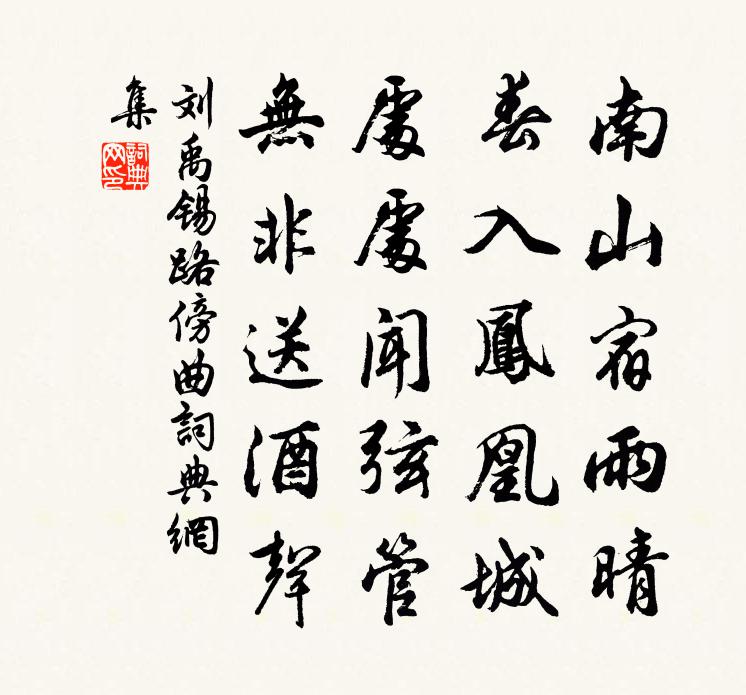 南山宿雨晴
春入鳳凰城
處處聞弦管
無非送酒聲
刘禹锡路傍曲詞典網
集
詞典
网印